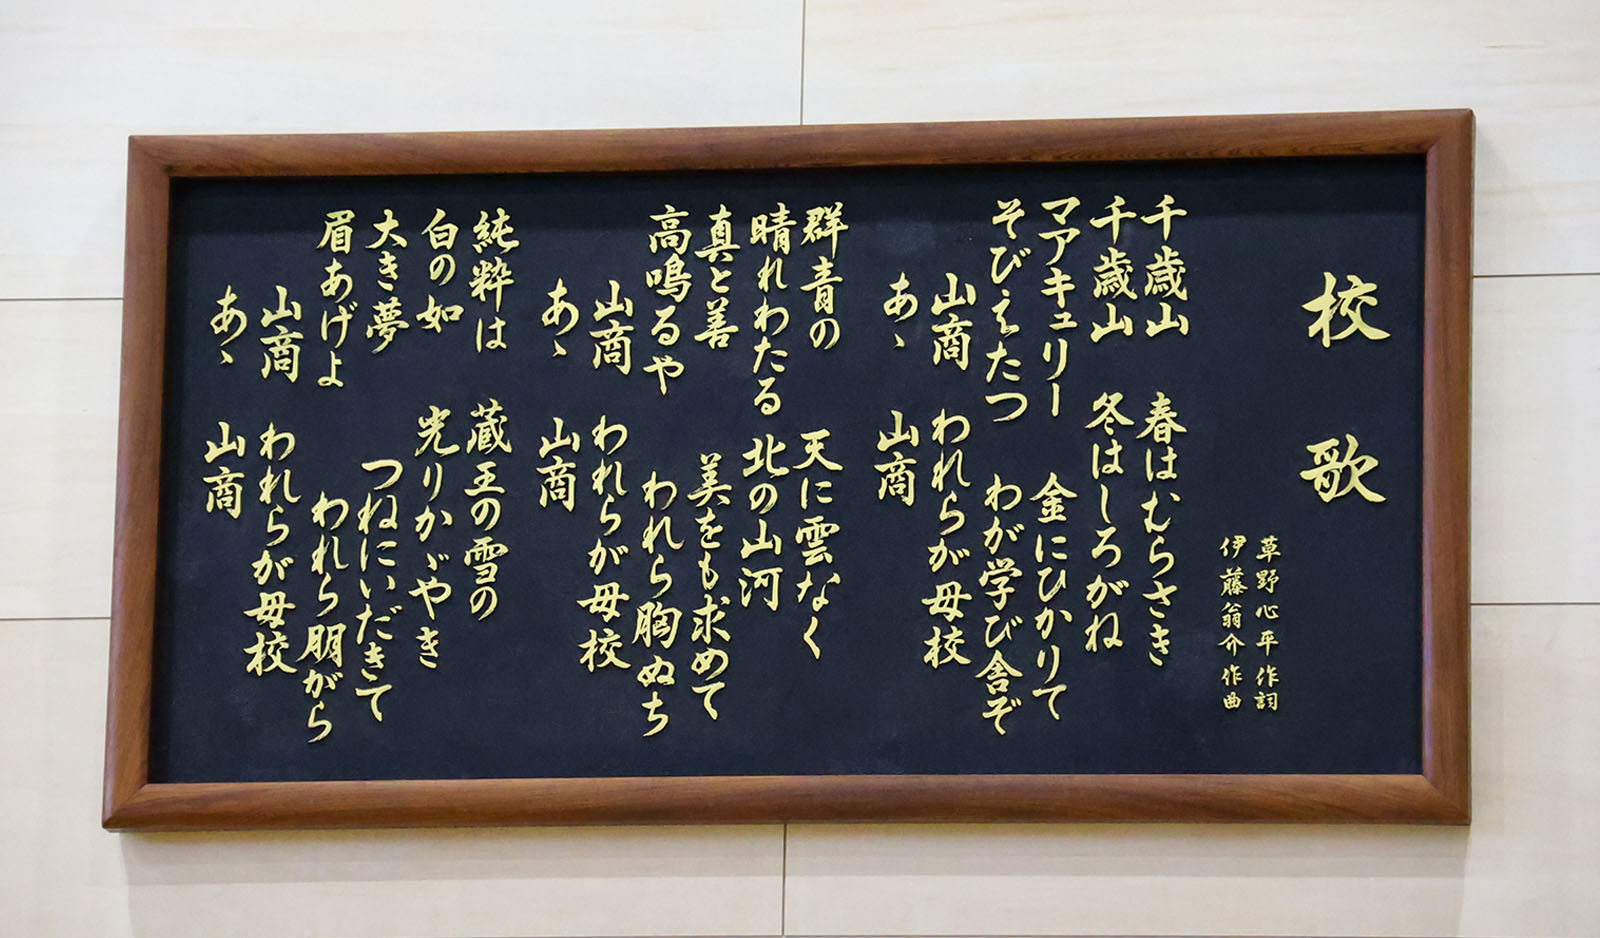 校歌
草野心平作詞
伊藤翁介作曲
千歳山 春はむらさき
千歳山 冬はしろがね
マアキュリー 金にひかりて
そびえたつ わが学び舎ぞ
山商 われらが母校
あゝ 山商
群青の 天に雲なく
晴れわたる 北の山河
真と善 美をも求めて
高鳴るや われら胸ぬち
山商 われらが母校
あゝ 山商
純粋は 蔵王の雪の
白の如 光りかゞやき
大き夢 つねにいだきて
眉あげよ われら朋がら
山商 われらが母校
あゝ 山商